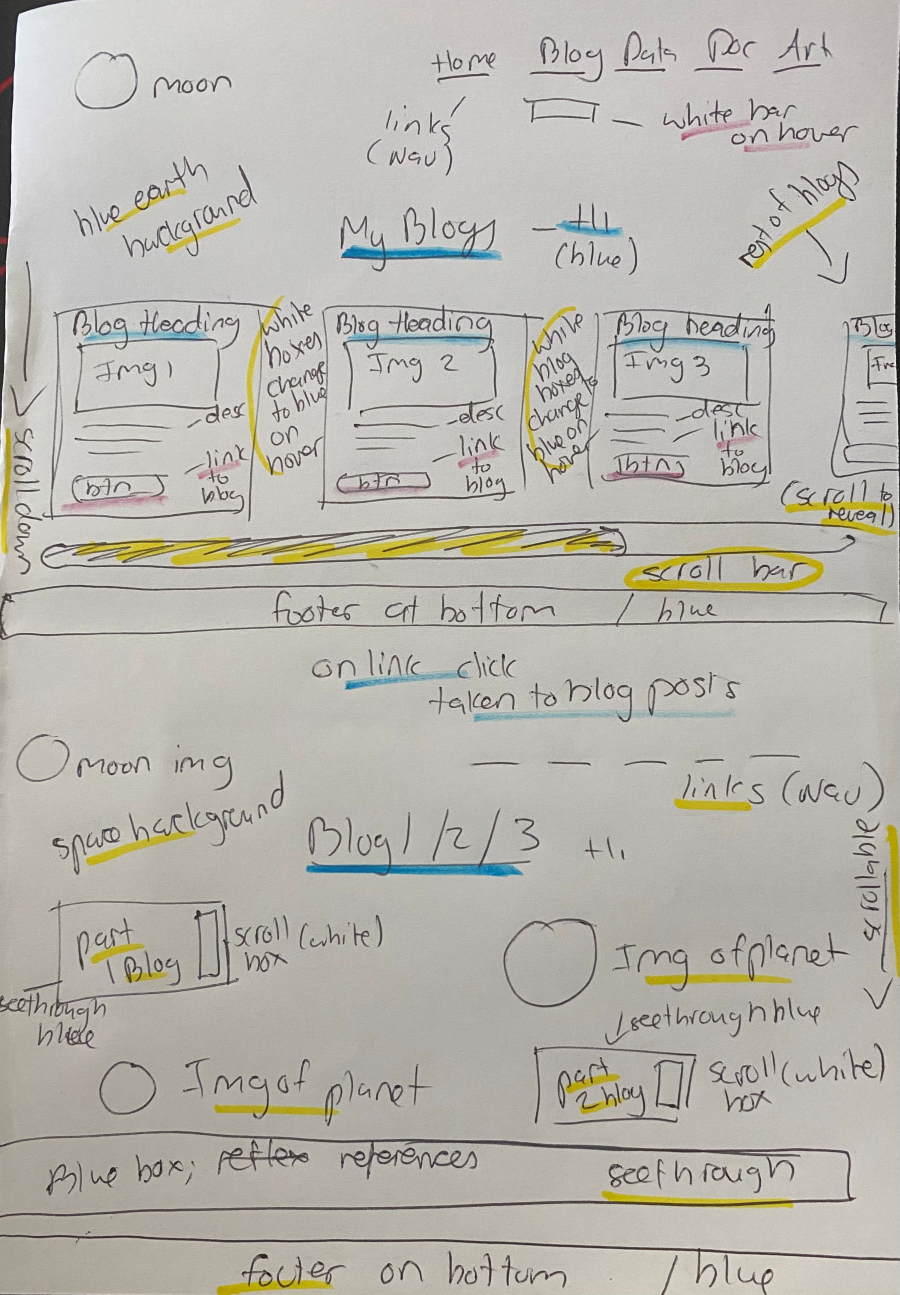 Home Blog Data Doc Art
moon
links
(nav)
white bar
on hover
blue earth
background
My Blogs
(blue)
rest of blogs
Blog Heading
Img 1
desc
link
to
blog
btn
white
boxes
change
to blue
on
hover
Blog Heading
Img 2
desc
link
to
blog
btn
white
blog
boxes
change to
blue on
hover
Blog heading
Img 3
desc
link
to
blog
btn
Blog
(scroll to
reveal)
scroll down
scroll bar
footer at bottom / blue
on link click
taken to blog posts
moon img
links (nav)
space background
Blog 1/2/3
scrollable
part
1 Blog
scroll (white)
box
seethrough
Img of planet
seethrough blue
Img of planet
part
2 blog
scroll (white)
box
Blue box; references
seethrough
footer on bottom / blue